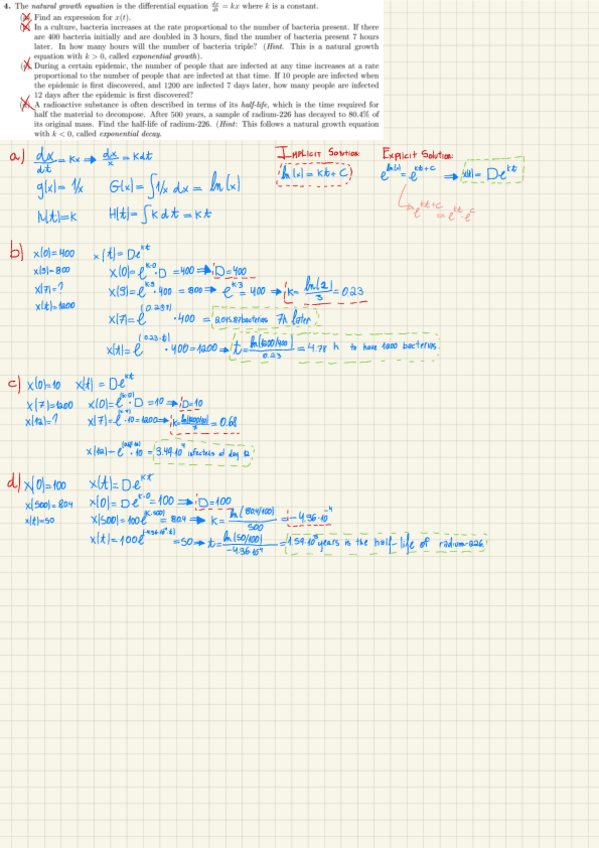 4. The natural growth equation is the differential equation dx/dt = kx where k is a constant.
(a) Find an expression for x(t).
(b) In a culture, bacteria increases at the rate proportional to the number of bacteria present. If there
are 400 bacteria initially and are doubled in 3 hours, find the number of bacteria present 7 hours
later. In how many hours will the number of bacteria triple? (Hint. This is a natural growth
equation with k > 0, called exponential growth).
(c) During a certain epidemic, the number of people that are infected at any time increases at a rate
proportional to the number of people that are infected at that time. If 10 people are infected when
the epidemic is first discovered, and 1200 are infected 7 days later, how many people are infected
12 days after the epidemic is first discovered?
(d) A radioactive substance is often described in terms of its half-life, which is the time required for
half the material to decompose. After 500 years, a sample of radium-226 has decayed to 80.4% of
its original mass. Find the half-life of radium-226. (Hint: This follows a natural growth equation
with k < 0, called exponential decay.
a) dx/dt = Kx → dx/x = Kdt
IMPLICIT Solution:
ln(x) = Kt + C
Explicit Solution:
e^ln(x) = e^(Kt+C) ⇒ x(t) = De^(Kt)
e^(Kt+C) = e^(Kt)·e^C
g(x) = 1/x G(x) = ∫1/x dx = ln(x)
h(t) = K H(t) = ∫K dt = Kt
b) x(0)=400 x(t) = De^(Kt)
x(3)=800 x(0) = e^(K·0)·D = 400 ⇒ D=400
x(7)=? x(3) = e^(K3)·400 = 800 ⇒ e^(K3) = 400 ⇒ K = ln(2)/3 = 0.23
x(t)=1200 x(7) = e^(0.23·7)·400 = bacterias 7h later
x(t) = e^(0.23·t)·400 = 1200 ⇒ t = ln(1200/400)/0.23 = 4.78 h to have 1200 bacterias.
c) x(0)=10 x(t) = De^(Kt)
x(7)=1200 x(0) = e^(K·0)·D = 10 ⇒ D=10
x(12)=? x(7) = e^(K·7)·10 = 1200 ⇒ K = ln(1200/10)/7 = 0.68
x(12) = e^(0.68·12)·10 = 3.49·10^4 infecteds at day 12
d) x(0)=100 x(t) = De^(Kt)
x(500)=80.4 x(0) = De^(K·0) = 100 ⇒ D=100
x(t)=50 x(500) = 100e^(K·500) = 80.4 ⇒ K = ln(80.4/100)/500 = -4.36·10^-4
x(t) = 100e^(-4.36·10^-4·t) = 50 ⇒ t = ln(50/100)/-4.36·10^-4 = 1.59·10^3 years is the half-life of radium-226.